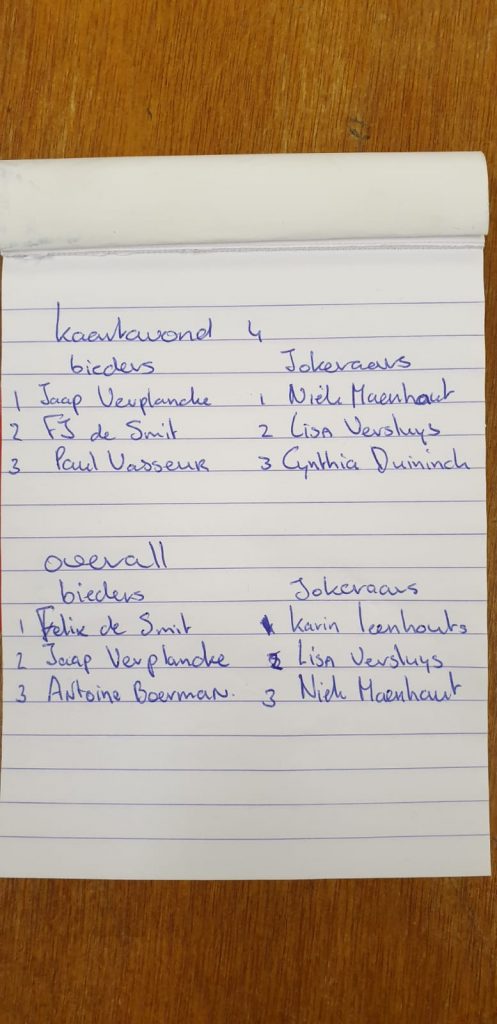 kaartavond 4
bieders Jokeraars
1 Jaap Verplancke 1 Niek Maenhout
2 FJ de Smit 2 Lisa Versluys
3 Paul Vasseur 3 Cynthia Duininck
overall
bieders Jokeraars
1 Felix de Smit 1 Karin Leenhouts
2 Jaap Verplancke 2 Lisa Versluys
3 Antoine Boerman. 3 Niek Maenhaut